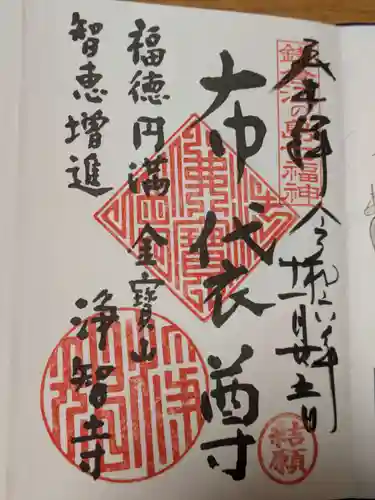 鎌倉江の島七福神
奉拝 令和六年
十一月廿五日
布袋尊
福徳円満 金寶山
智恵増進 浄智寺
結願